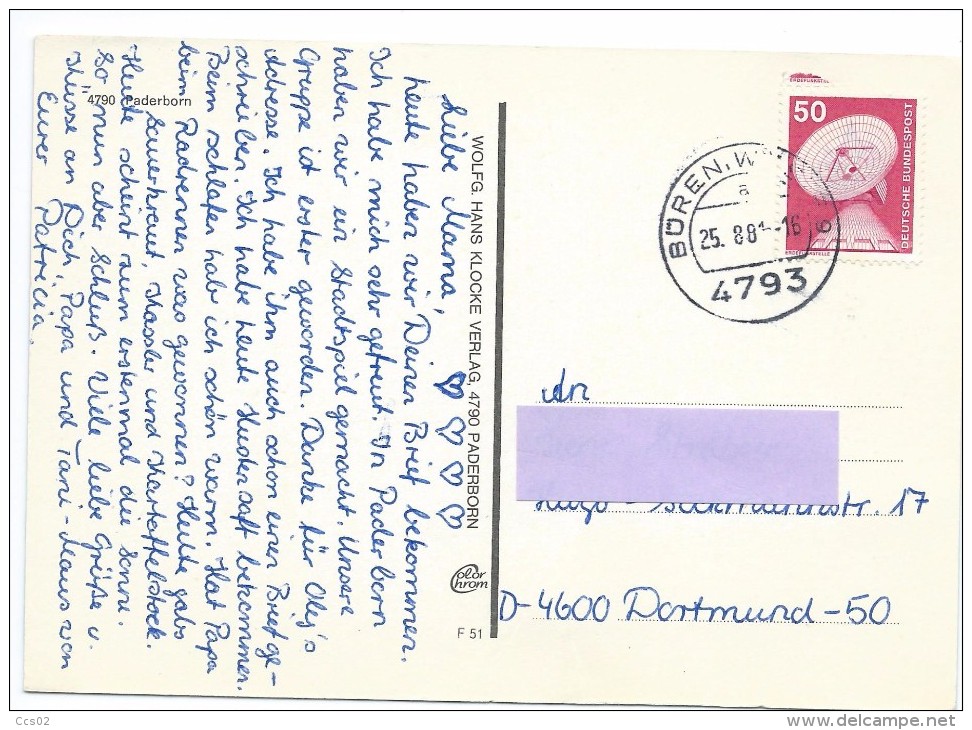 Liebe Mama, ♡ ♡ ♡ ♡
heute haben wir Deinen Brief bekommen.
Ich habe mich sehr gefreut. In Paderborn
haben wir ein Stadtspiel gemacht. Unsere
Gruppe ist erster geworden. Danke für Oleg's
Adresse. Ich habe ihm auch schon einen Brief ge-
schrieben. Ich habe heute Hustensaft bekommen.
Beim schlafen hab ich schön warm. Hat Papa
beim Radrennen was gewonnen? Heute gabs
Sauerkraut, Kassler und Kartoffelstock.
Heute scheint zum erstenmal die Sonne.
So nun aber Schluß. Viele liebe Grüße u.
Küsse an Dich, Papa und Tani-Maus von
Eurer Patricia
4790 Paderborn
WOLFG. HANS KLOCKE VERLAG, 4790 PADERBORN
Color Chrom
F 51
50
DEUTSCHE BUNDESPOST
ERDEFUNKSTELLE
BÜREN, W
a
25. 8 8 -16
6
4793
An
Hugo 17
D-4600 Dortmund-50
Ccs02
www.delcampe.net